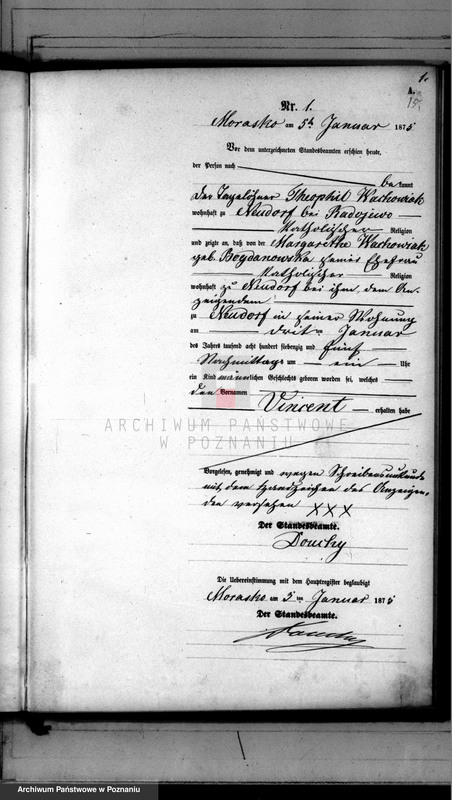 1.
A.
15.
Nr. 1.
Morasko am 5t Januar 1875
Vor dem unterzeichneten Standesbeamten erschien heute,
der Person nach
bekannt
der Tagelöhner Theophil Wachowiak
wohnhaft zu Neudorf bei Radojewo
Katholischer Religion
und zeigte an, daß von der Margarethe Wachowiak
geb. Bogdanowska seiner Ehefrau
Katholischer Religion
wohnhaft zu Neudorf bei ihm, dem An-
zeigendem
zu Neudorf in seiner Wohnung
am drit Januar
des Jahres tausend acht hundert siebenzig und fünf
Nachmittags um ein Uhr
ein Kind männlichen Geschlechts geboren worden sei, welches
den Vornamen
Vincent erhalten habe
ARCHIWUM PAŃSTWOWE
W POZNANIU
Vorgelesen, genehmigt und wegen Schreibensunkunde
mit dem Handzeichen des Anzeigen-
den versehen XXX
Der Standesbeamte.
Douchy
Die Uebereinstimmung mit dem Hauptregister beglaubigt
Morasko am 5ten Januar 1875
Der Standesbeamte.
Archiwum Państwowe w Poznaniu